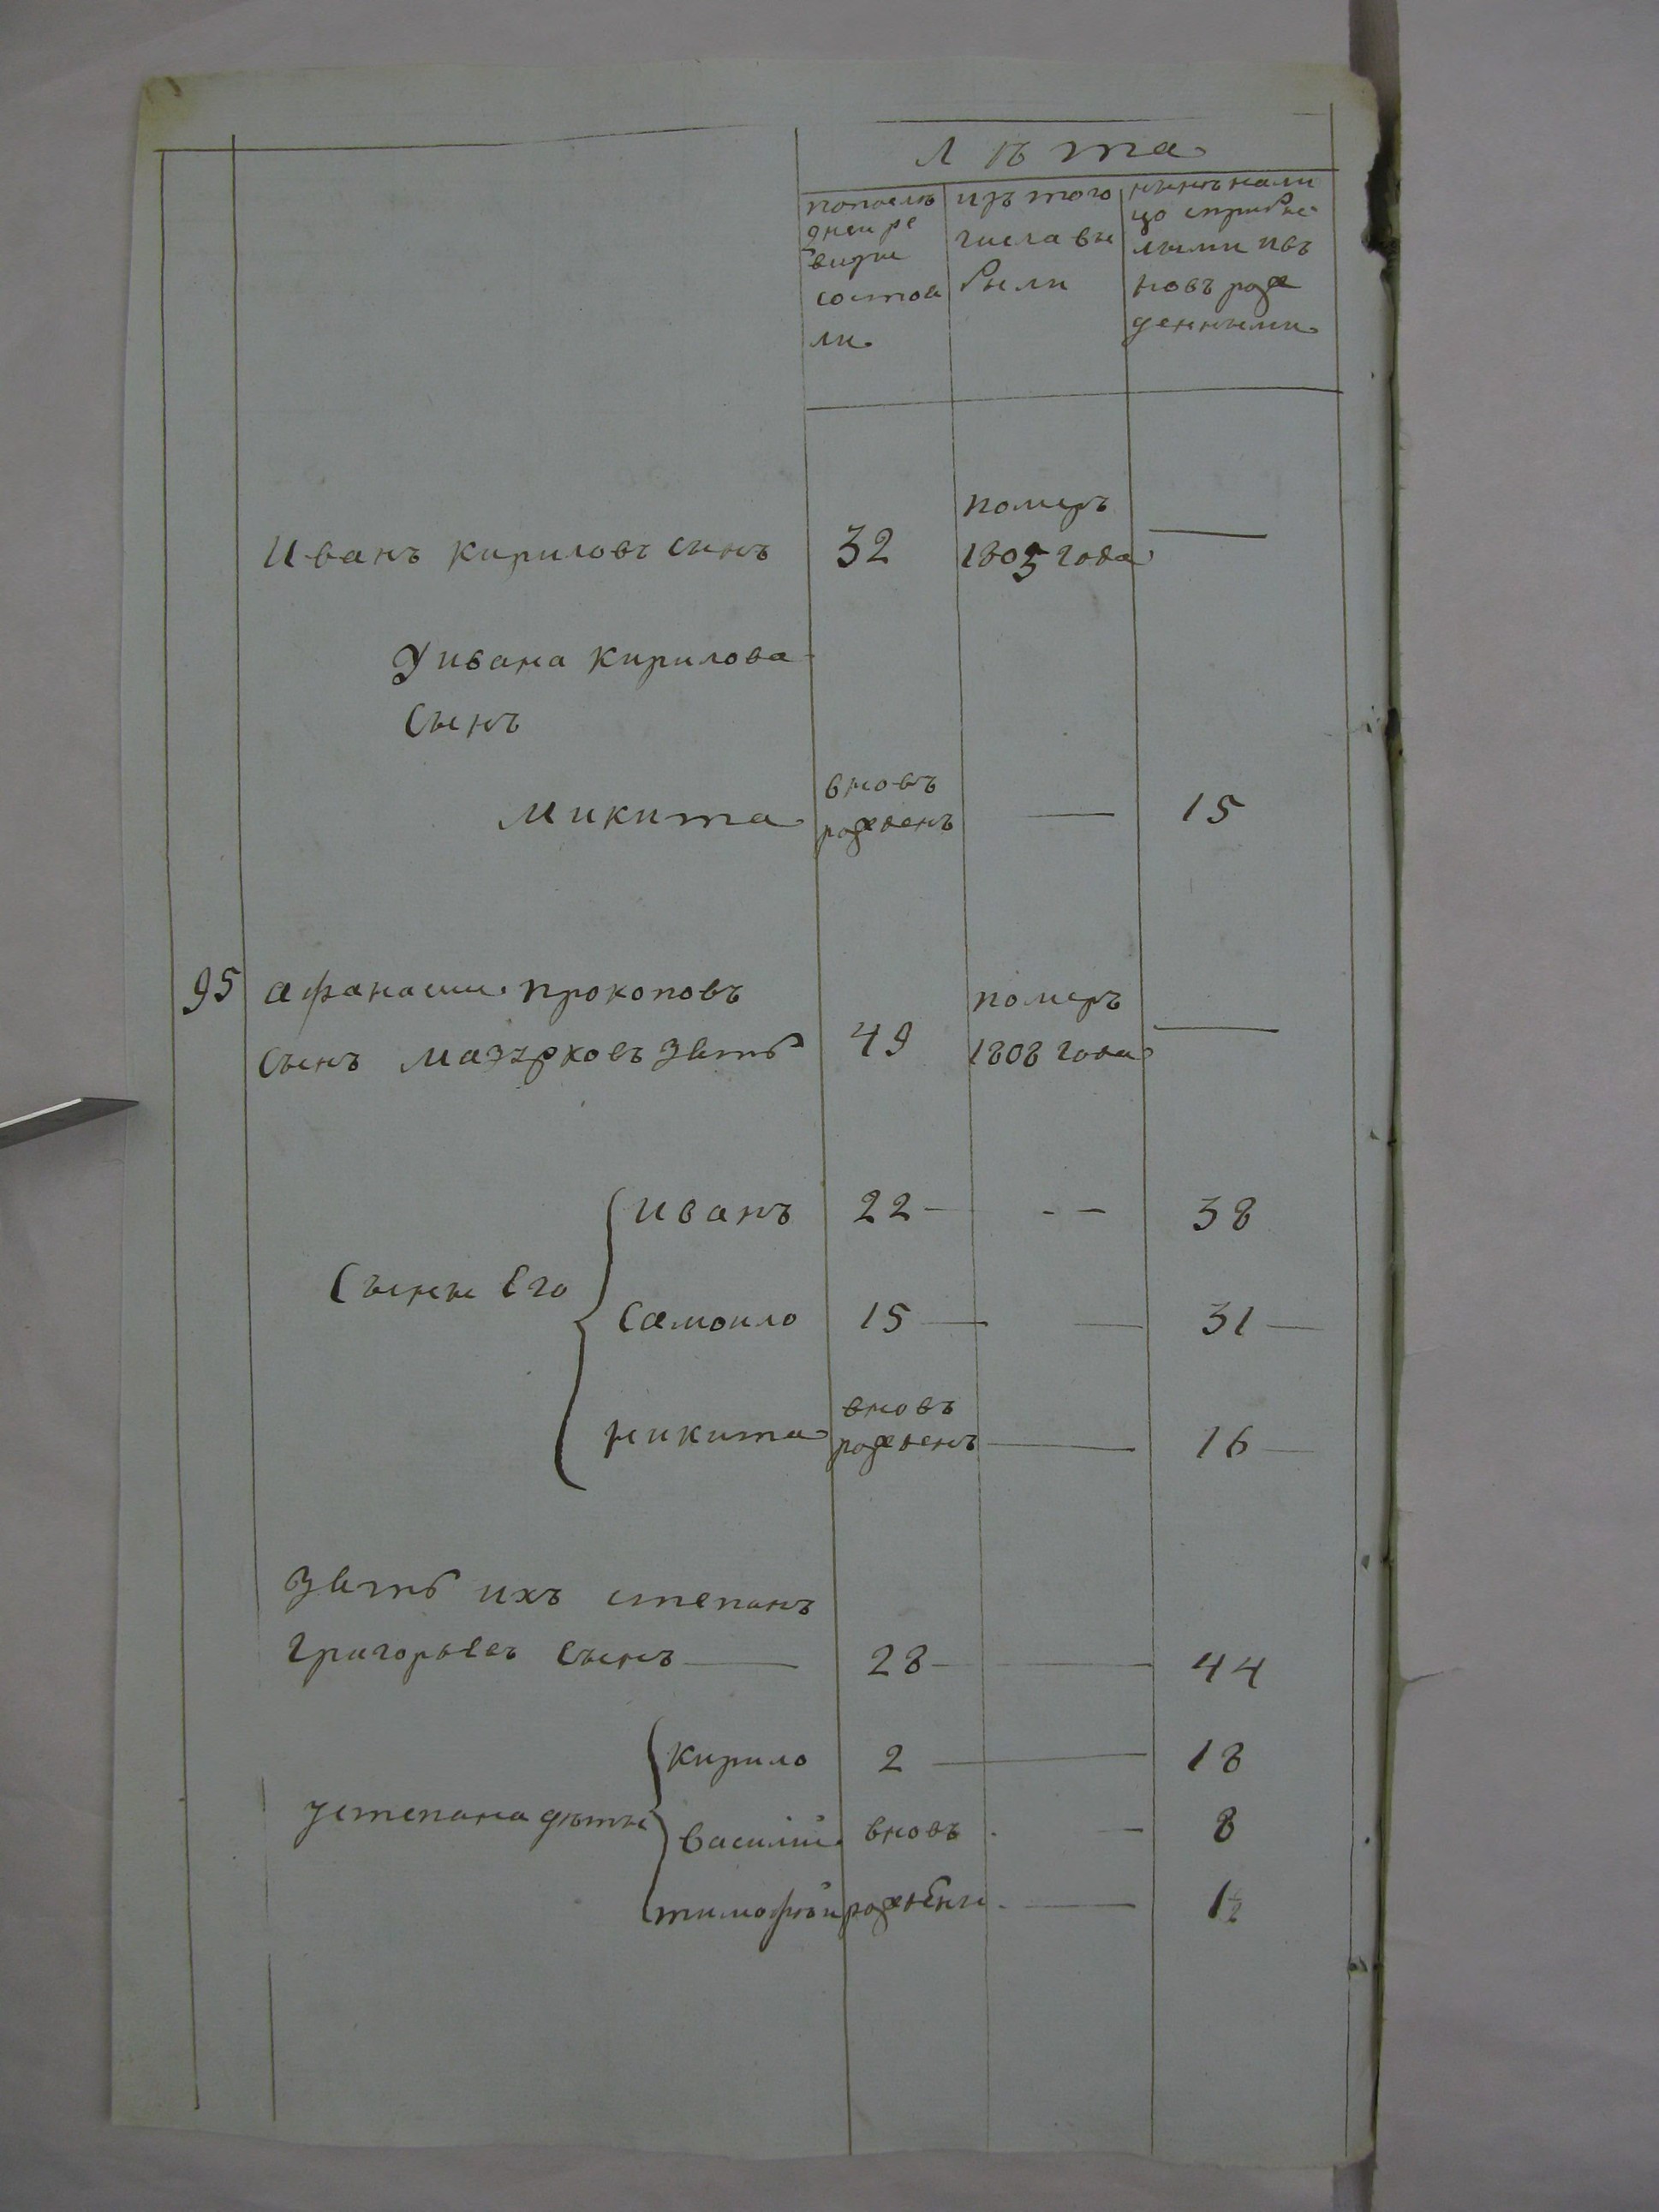 Лѣта
попослѣ
дней ре
визіи
состоя
ли
изъ того
числа вы
были
нынѣ нали
цо сприбы
лыми ивъ
новь рож
денными
померъ
Иванъ кириловъ сынъ 32 1805 года —
У ивана кирилова
Сынъ
вновь
микита рожденъ — 15
95 афанасии прокоповъ померъ
сынъ мазурковъ зять 49 1808 года —
Сыны Его
иванъ 22 — - — 38
Самоило 15 — — 31 —
вновь
никита рожденъ — 16 —
Зять ихъ степанъ
григорьевъ сынъ — 28 — — 44
устепана дѣти
кирило 2 — 18
василий вновь — 8
тимофѣй рождены — 1½